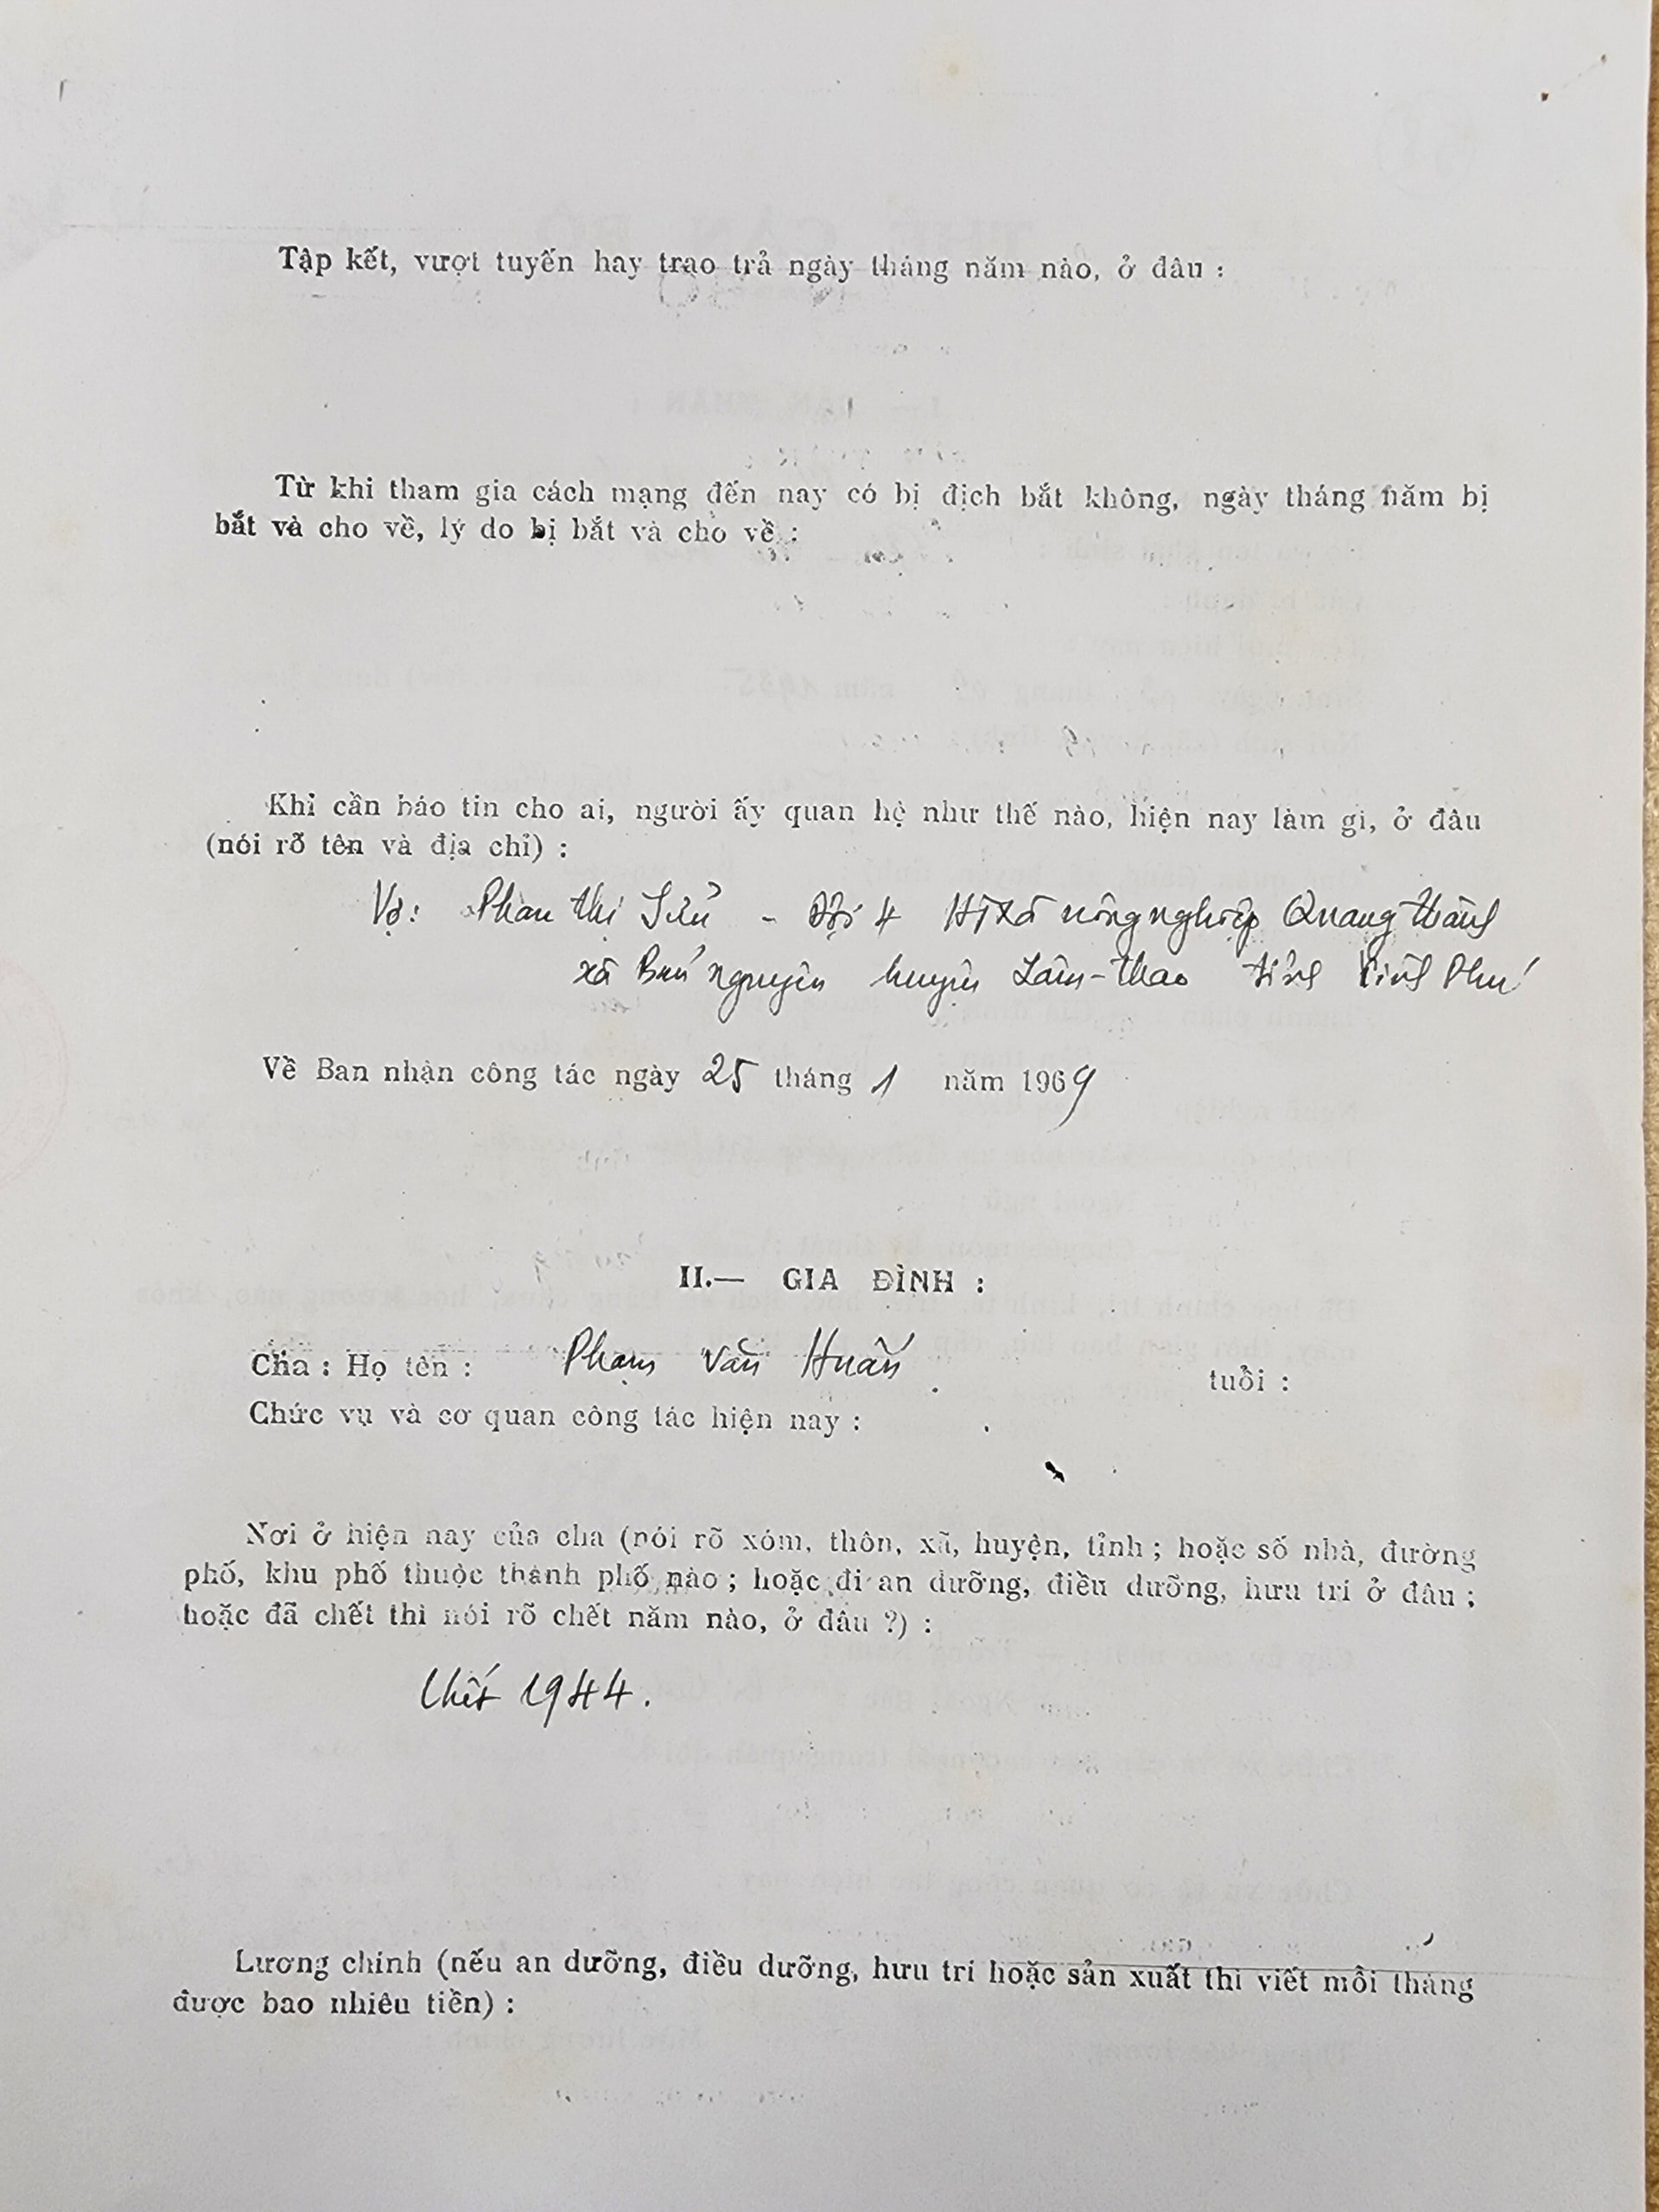 Tập kết, vượt tuyến hay trao trả ngày tháng năm nào, ở đâu :
Từ khi tham gia cách mạng đến nay có bị địch bắt không, ngày tháng năm bị
bắt và cho về, lý do bị bắt và cho về :
Khi cần báo tin cho ai, người ấy quan hệ như thế nào, hiện nay làm gì, ở đâu
(nói rõ tên và địa chỉ) :
Vợ: Phan thị - Đội 4 HTXã nông nghiệp Quang thành
xã nguyên huyện Lâm-thao tỉnh Vĩnh Phú
Về Ban nhận công tác ngày 25 tháng 1 năm 1969
II.— GIA ĐÌNH :
Cha : Họ tên : Phạm văn Huấn tuổi :
Chức vụ và cơ quan công tác hiện nay :
Nơi ở hiện nay của cha (nói rõ xóm, thôn, xã, huyện, tỉnh ; hoặc số nhà, đường
phố, khu phố thuộc thành phố nào ; hoặc đi an dưỡng, điều dưỡng, hưu trí ở đâu ;
hoặc đã chết thì nói rõ chết năm nào, ở đâu ?) :
Chết 1944.
Lương chính (nếu an dưỡng, điều dưỡng, hưu trí hoặc sản xuất thì viết mỗi tháng
được bao nhiêu tiền) :